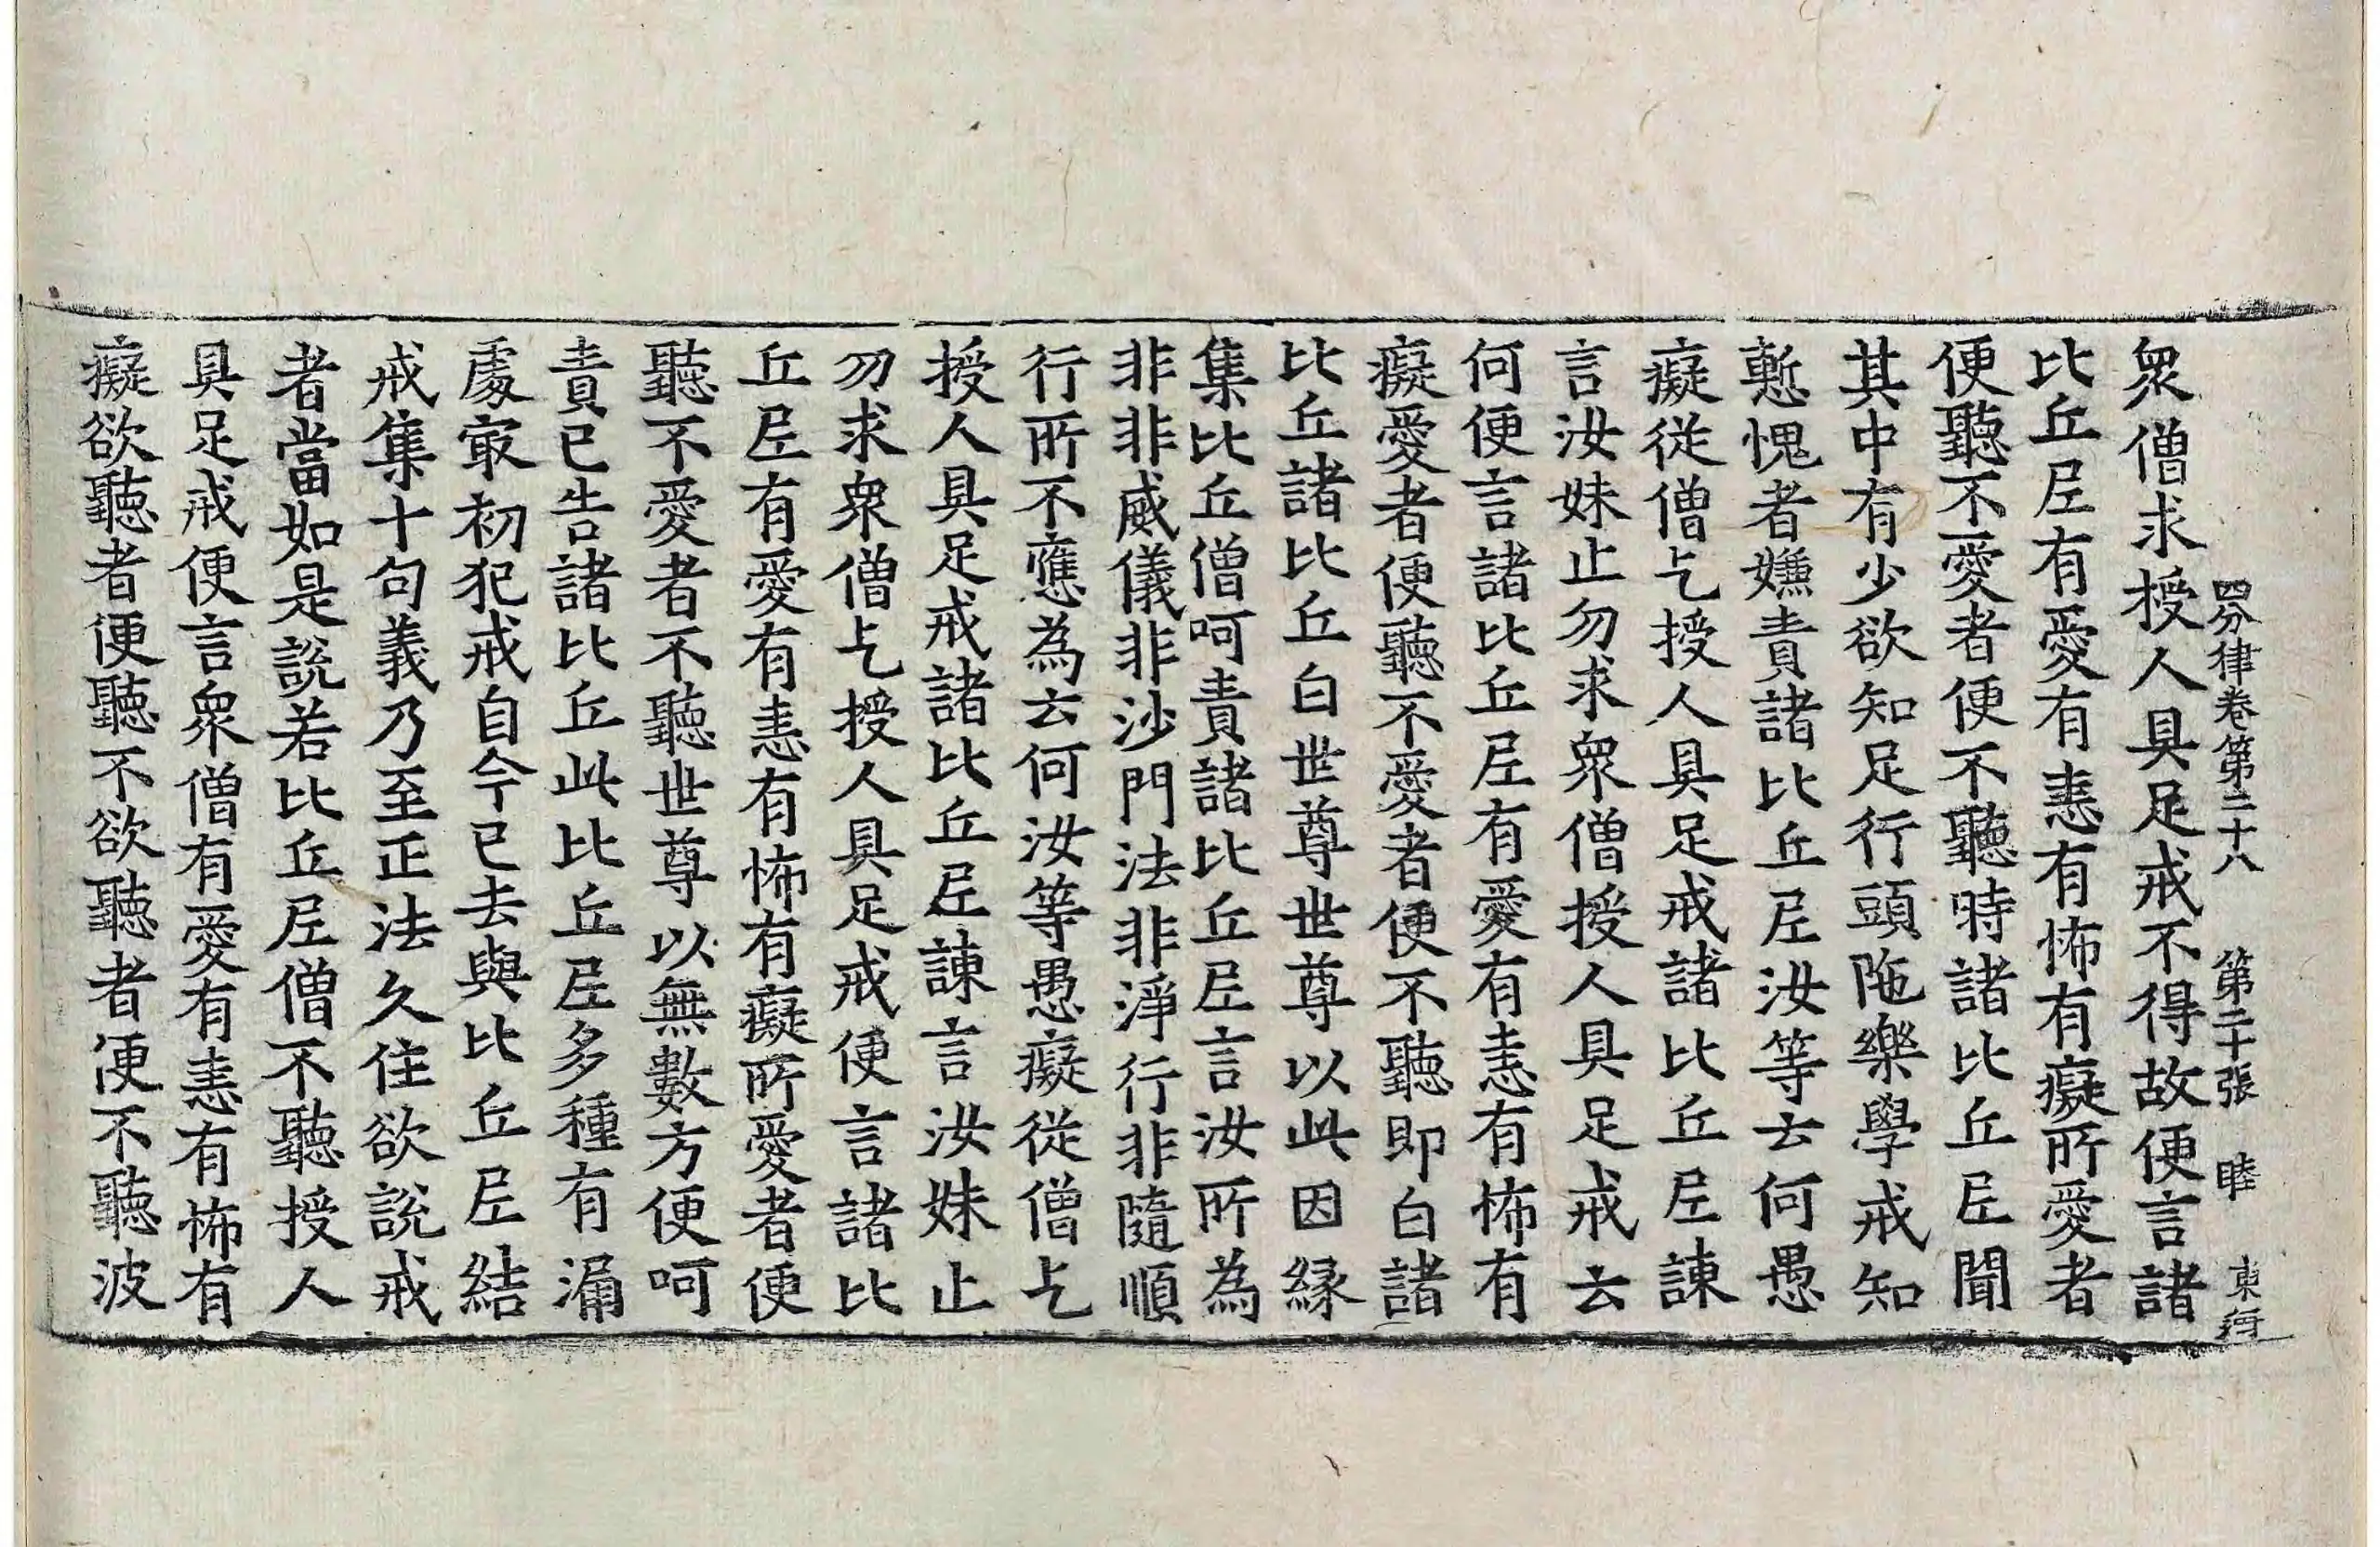 四分律卷第二十八　第二十張　睦　東
眾僧求授人具足戒不得故便言諸
比丘尼有愛有恚有怖有癡所愛者
便聽不愛者便不聽時諸比丘尼聞
其中有少欲知足行頭陁樂學戒知
慙愧者嫌責諸比丘尼汝等云何愚
癡從僧乞授人具足戒諸比丘尼諫
言汝妹止勿求眾僧授人具足戒云
何便言諸比丘尼有愛有恚有怖有
癡愛者便聽不愛者便不聽即白諸
比丘諸比丘白世尊世尊以此因緣
集比丘僧呵責諸比丘尼言汝所為
非非威儀非沙門法非淨行非隨順
行所不應為云何汝等愚癡從僧乞
授人具足戒諸比丘尼諫言汝妹止
勿求眾僧乞授人具足戒便言諸比
丘尼有愛有恚有怖有癡所愛者便
聽不愛者不聽世尊以無數方便呵
責已告諸比丘此比丘尼多種有漏
處㝡初犯戒自今已去與比丘尼結
戒集十句義乃至正法久住欲說戒
者當如是說若比丘尼僧不聽授人
具足戒便言眾僧有愛有恚有怖有
癡欲聽者便聽不欲聽者便不聽波